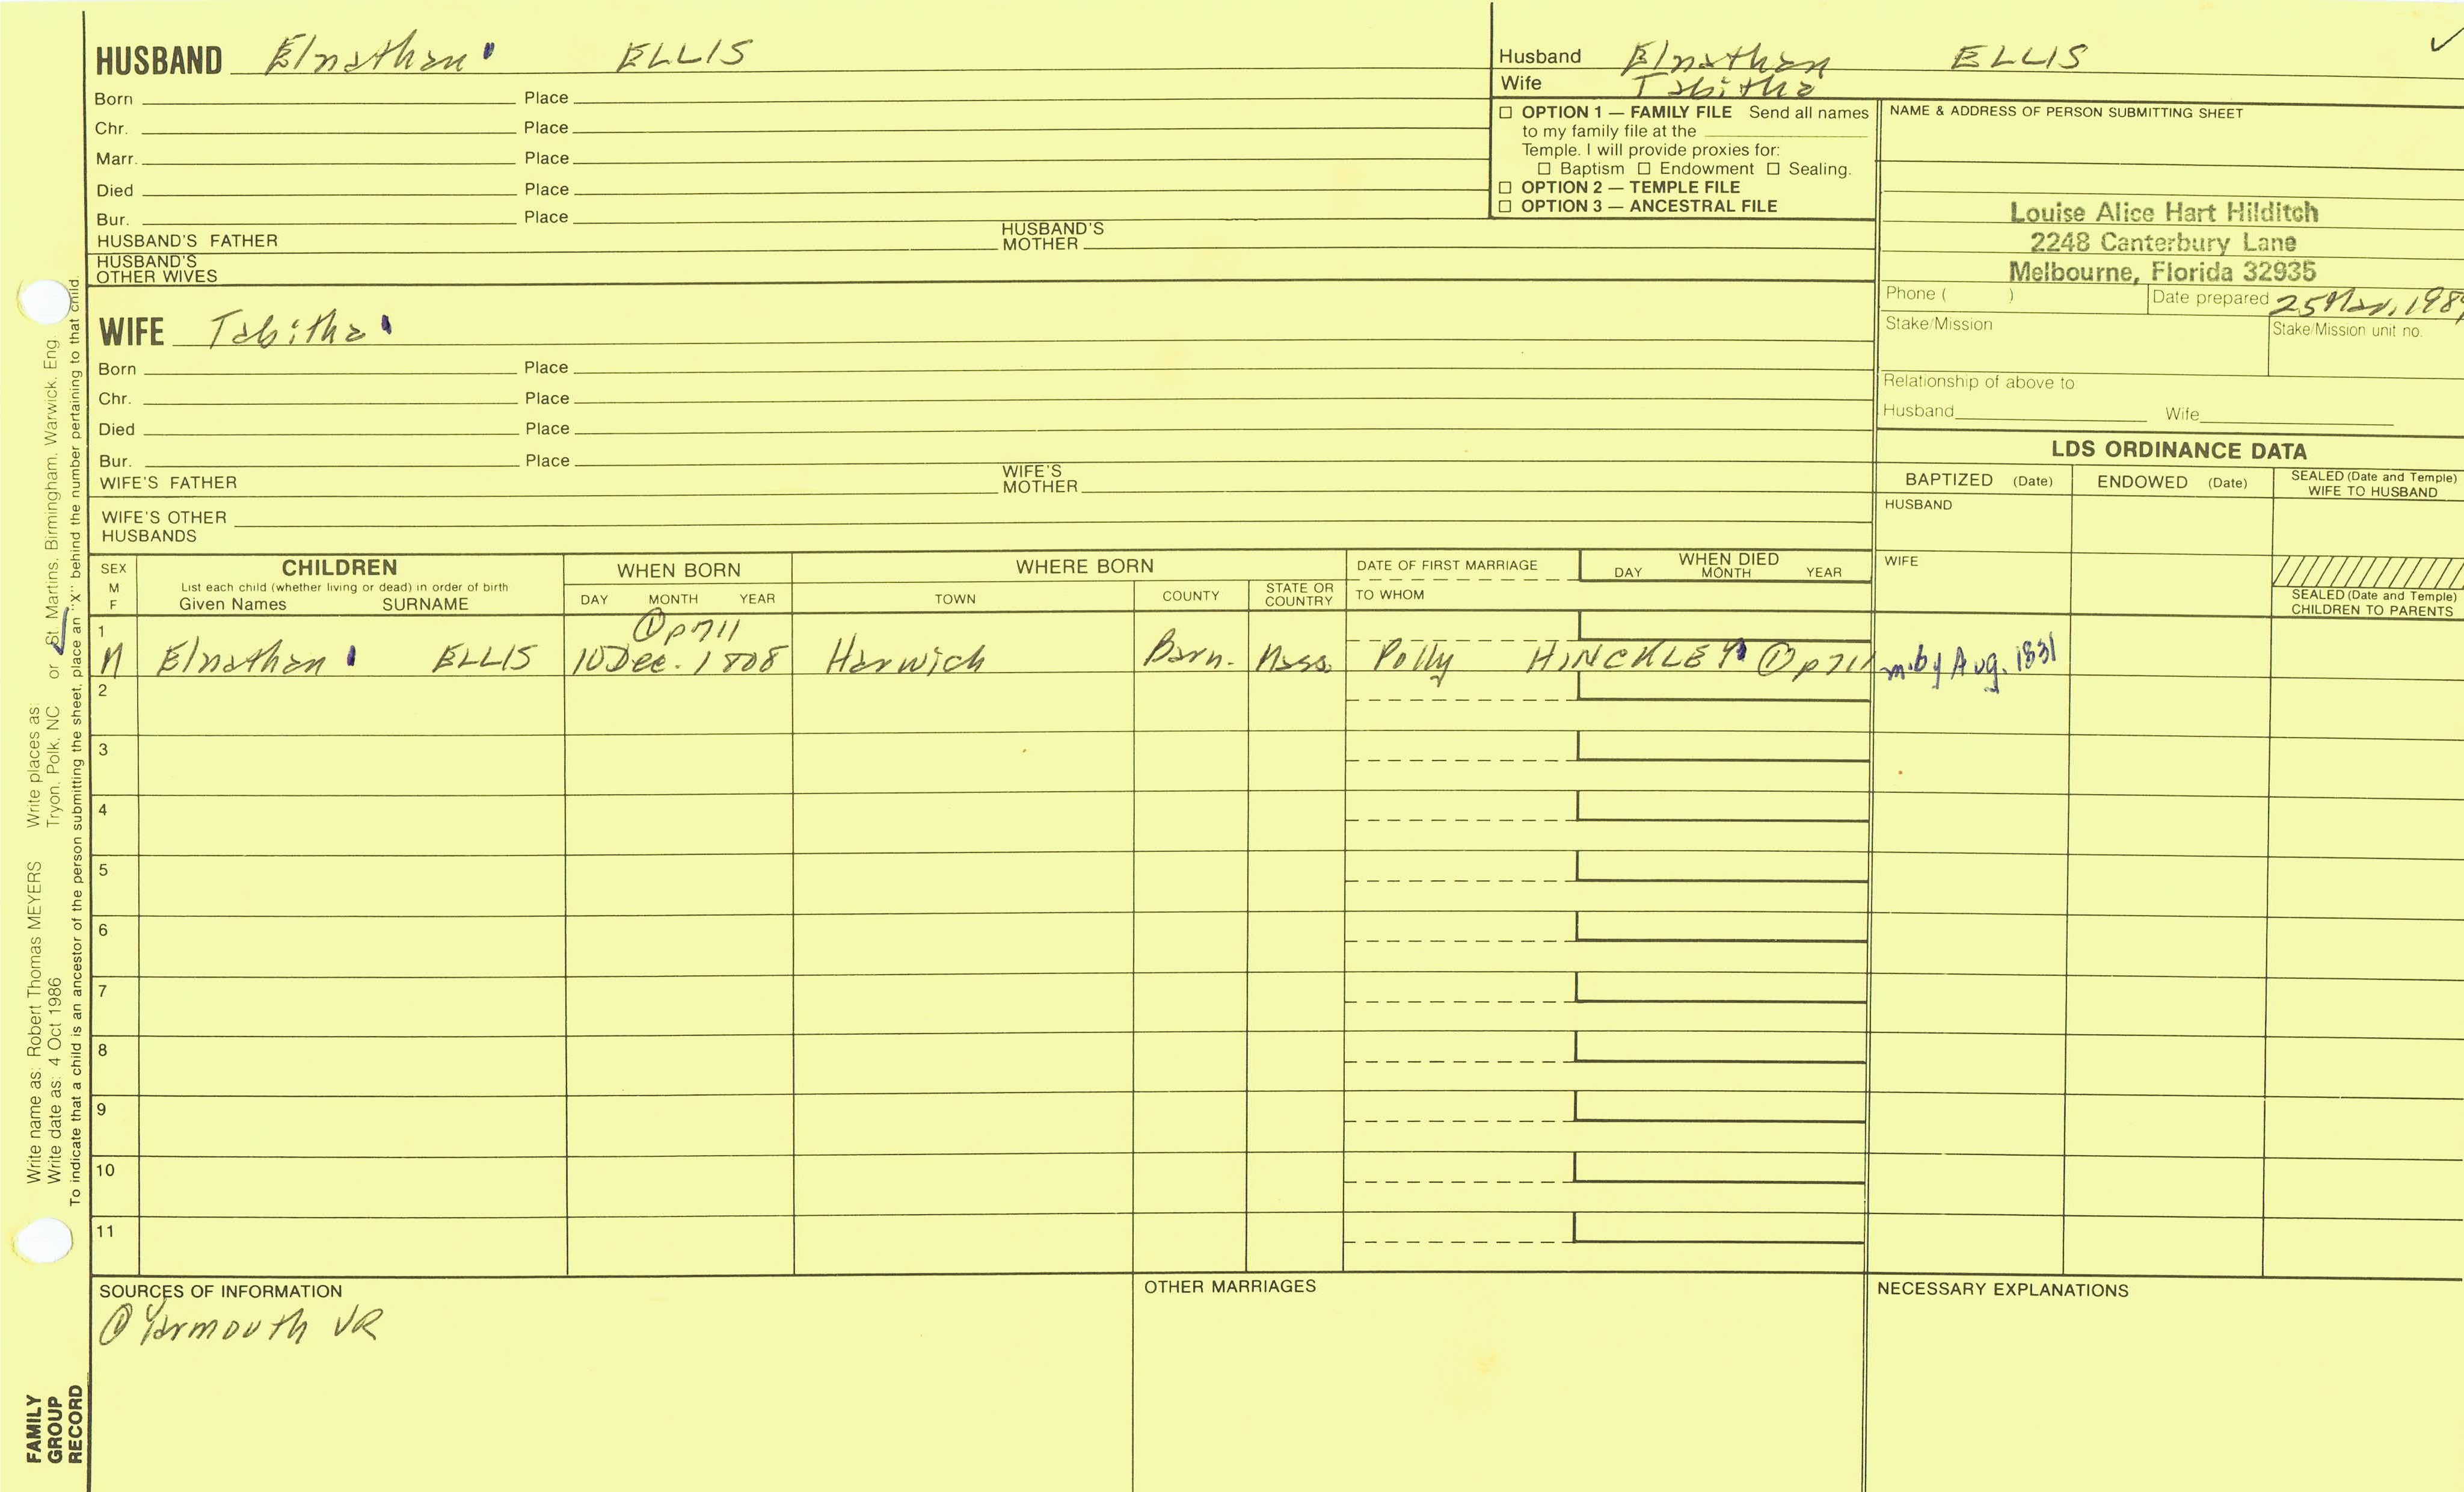 HUSBAND Elnathan ELLIS
Born Place
Chr. Place
Marr. Place
Died Place
Bur. Place
HUSBAND'S FATHER HUSBAND'S MOTHER
HUSBAND'S OTHER WIVES
WIFE Tabitha
Born Place
Chr. Place
Died Place
Bur. Place
WIFE'S FATHER WIFE'S MOTHER
WIFE'S OTHER HUSBANDS
Husband Elnathan ELLIS
Wife Tabitha
☐ OPTION 1 — FAMILY FILE Send all names
to my family file at the
Temple. I will provide proxies for:
☐ Baptism ☐ Endowment ☐ Sealing.
☐ OPTION 2 — TEMPLE FILE
☐ OPTION 3 — ANCESTRAL FILE
NAME & ADDRESS OF PERSON SUBMITTING SHEET
Louise Alice Hart Hilditch
2248 Canterbury Lane
Melbourne, Florida 32935
Phone ( ) Date prepared 25 Mar, 198
Stake/Mission Stake/Mission unit no.
Relationship of above to
Husband Wife
LDS ORDINANCE DATA
BAPTIZED (Date) ENDOWED (Date) SEALED (Date and Temple) WIFE TO HUSBAND
HUSBAND
WIFE
SEALED (Date and Temple) CHILDREN TO PARENTS
SEX M F
CHILDREN
List each child (whether living or dead) in order of birth
Given Names SURNAME
WHEN BORN
DAY MONTH YEAR
WHERE BORN
TOWN COUNTY STATE OR COUNTRY
DATE OF FIRST MARRIAGE
TO WHOM
WHEN DIED
DAY MONTH YEAR
1
① p711
M Elnathan ELLIS 10 Dec. 1808 Harwich Barn. Mass. Polly HINCKLEY ① p711 m. by Aug. 1831
2
3
4
5
6
7
8
9
10
11
SOURCES OF INFORMATION
① Yarmouth VR
OTHER MARRIAGES
NECESSARY EXPLANATIONS
Write name as: Robert Thomas MEYERS Write places as:
Write date as: 4 Oct 1986 Tryon, Polk, NC or St Martins, Birmingham, Warwick, Eng.
To indicate that a child is an ancestor of the person submitting the sheet, place an "X" behind the number pertaining to that child.
FAMILY
GROUP
RECORD